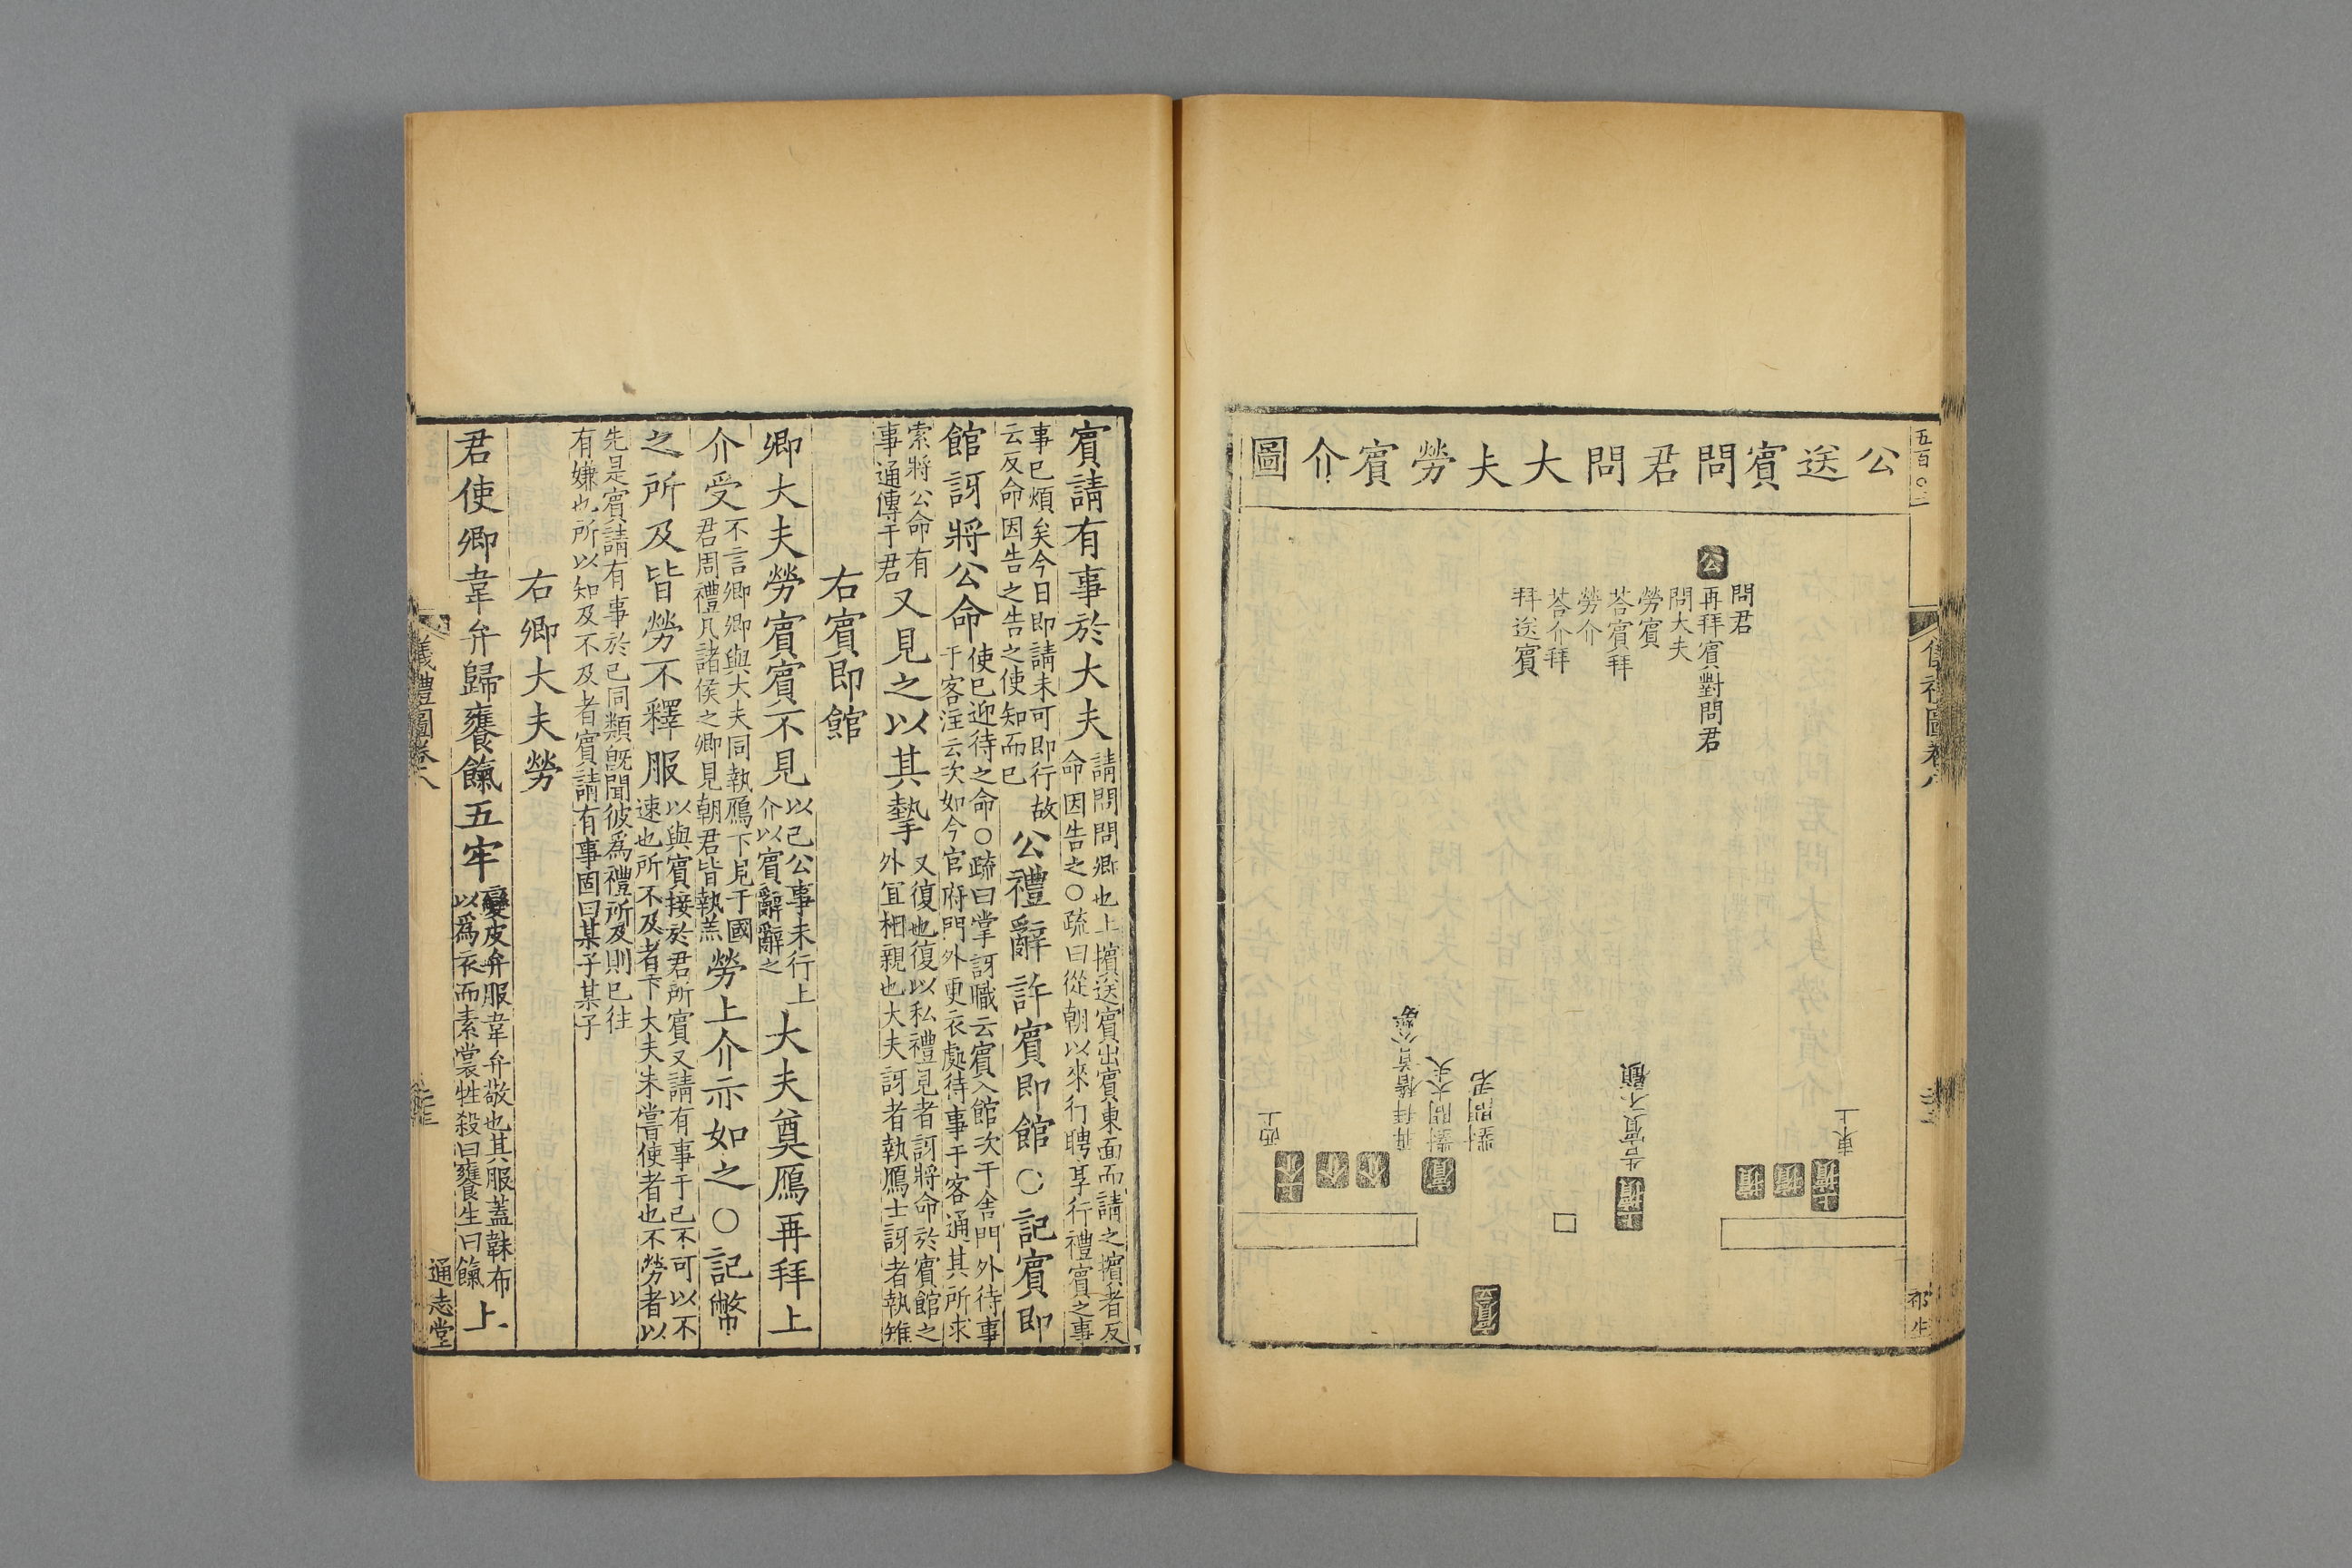 公送賓問君問大夫勞賓介圖
公
問君
再拜賓對問君
問大夫
勞賓
荅賓拜
勞介
荅介拜
拜送賓
東上
上擯
擯
擯
告賓不顧
上擯
對問君
賓
對問大夫
再拜稽首公勞
介
介
西上
五百〇二
賓請有事於大夫
請問問卿也上擯送賓出賓東面而請之擯者反
命因告之〇疏曰從朝以來行聘享行禮賓之事
事已煩矣今日即請未可即行故
云反命因告之告之使知而已
公禮辭許賓即館〇記賓即
館訝將公命
使已迎待之命〇疏曰掌訝職云賓入館次于舍門外待事
于客注云次如今官府門外更衣處待事于客通其所求
索將公命有
事通傳于君
又見之以其摯
又復也復以私禮見者訝將命於賓館之
外宜相親也大夫訝者執鴈士訝者執雉
右賓即館
卿大夫勞賓賓不見
以已公事未行上
介以賓辭辭之
大夫奠鴈再拜上
介受
不言卿卿與大夫同執鴈下見于國
君周禮凡諸侯之卿見朝君皆執羔
勞上介亦如之〇記幣
之所及皆勞不釋服
以與賓接於君所賓又請有事于已不可以不
速也所不及者下大夫未嘗使者也不勞者以
先是賓請有事於已同類旣聞彼爲禮所及則已往
有嫌也所以知及不及者賓請有事固曰某子某子
右卿大夫勞
君使卿韋弁歸饔餼五牢
變皮弁服韋弁敬也其服蓋韎布
以爲衣而素裳牲殺曰饔生曰餼
上
儀禮圖卷八
通志堂